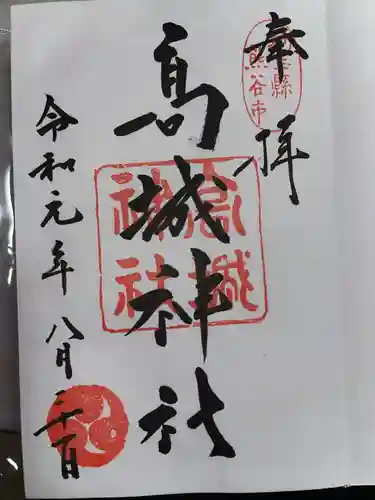 奉拝
埼玉縣
熊谷市
髙城神社
髙城
神社
令和元年八月二十一日